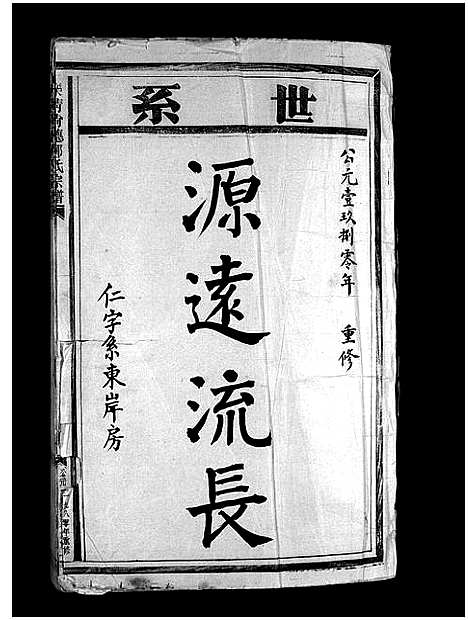 世系
公元壹玖捌零年 重修
源遠流長
仁字系東岸房
氏宗譜